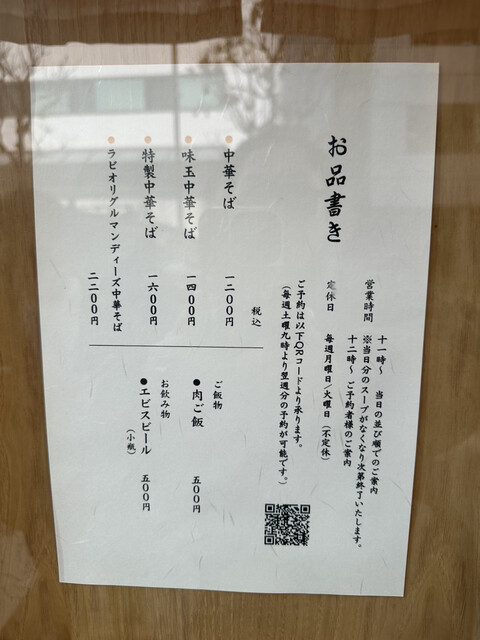 お品書き
営業時間
十一時〜 当日の並び順でのご案内
※当日分のスープがなくなり次第終了いたします。
十二時〜 ご予約者様のご案内
定休日 毎週月曜日/火曜日(不定休)
ご予約は以下QRコードより承ります。
(毎週土曜九時より翌週分の予約が可能です。)
税込
●中華そば 一二〇〇円
●味玉中華そば 一四〇〇円
●特製中華そば 一六〇〇円
●ラビオリグルマンディーズ中華そば 二二〇〇円
ご飯物
●肉ご飯 五〇〇円
お飲み物
●エビスビール 五〇〇円
(小瓶)